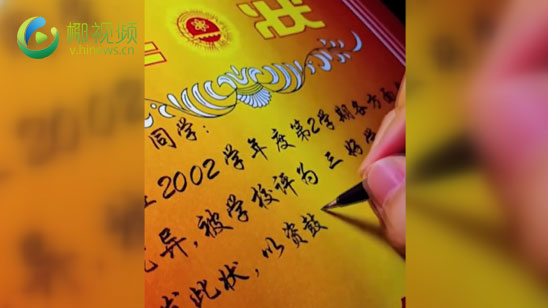 椰视频
v.hinews.cn
状
同学：
2002学年度第2学期各方面
异，被学校评为三好学
此状，以资鼓